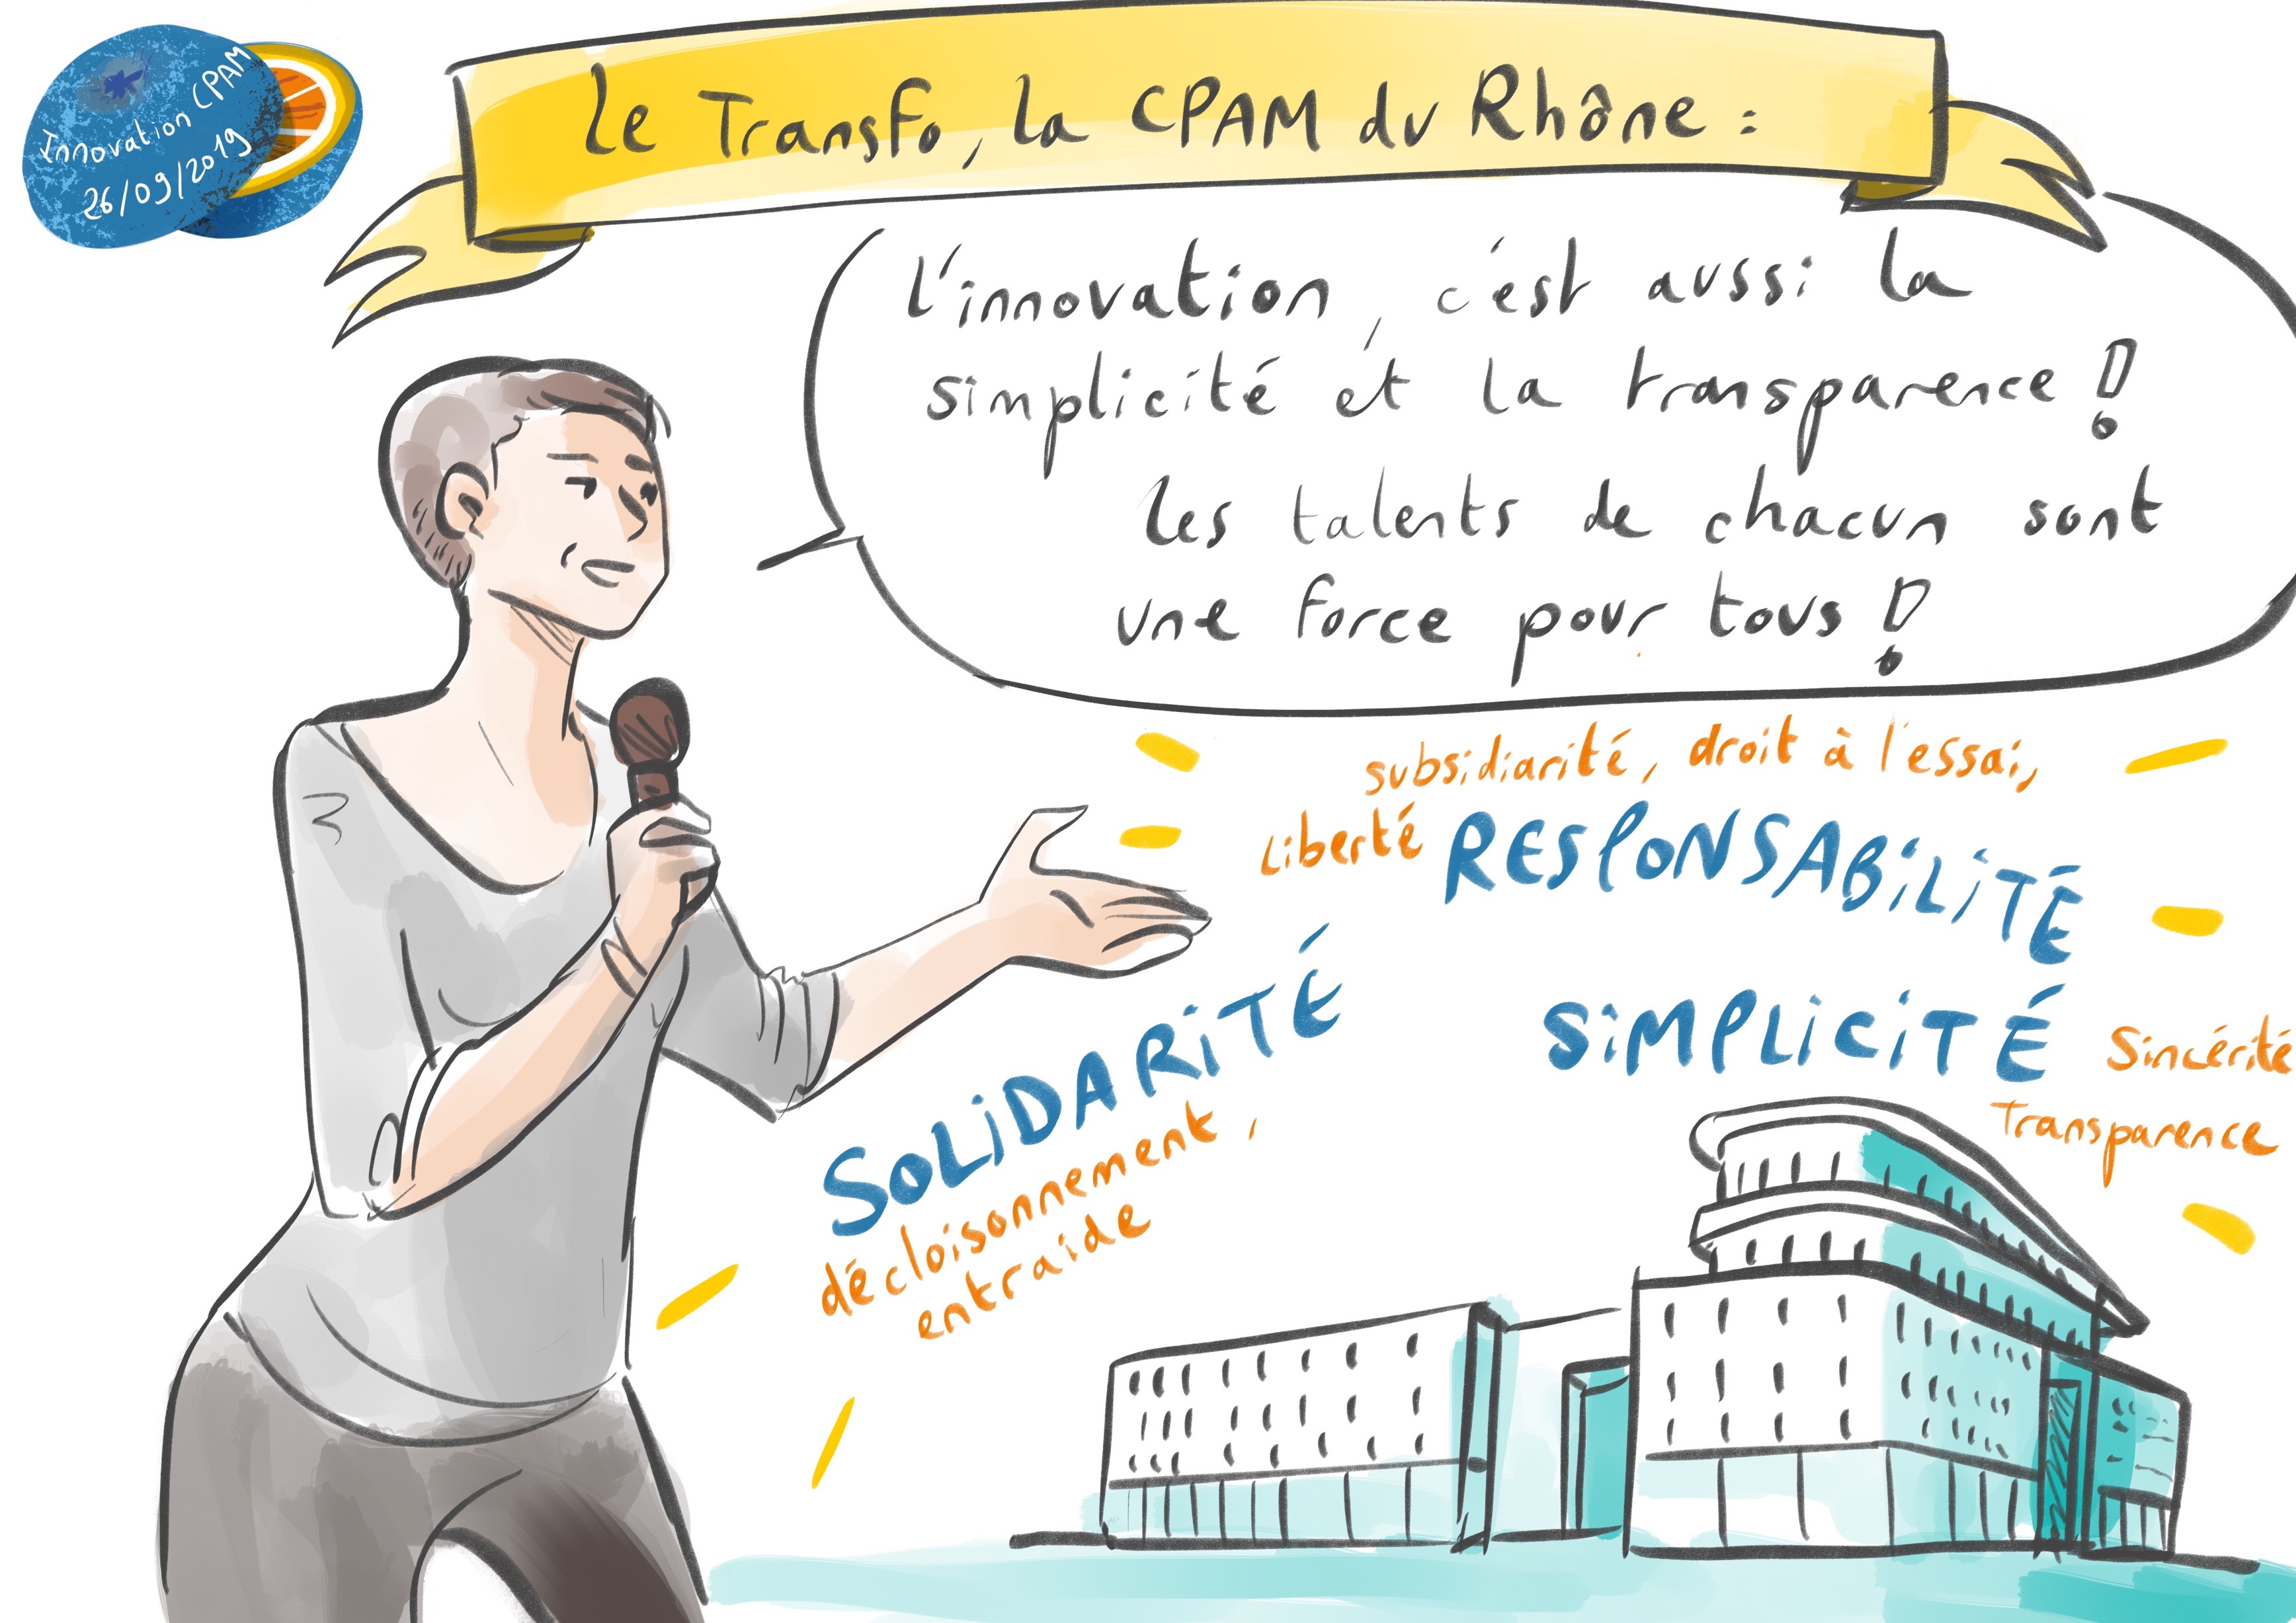 Innovation CPAM
26/09/2019
Le Transfo, la CPAM du Rhône :
L'innovation, c'est aussi la
simplicité et la transparence !
Les talents de chacun sont
une force pour tous !
subsidiarité, droit à l'essai,
Liberté RESPONSABILITÉ
SOLIDARITÉ
décloisonnement,
entraide
SIMPLICITÉ Sincérité
Transparence